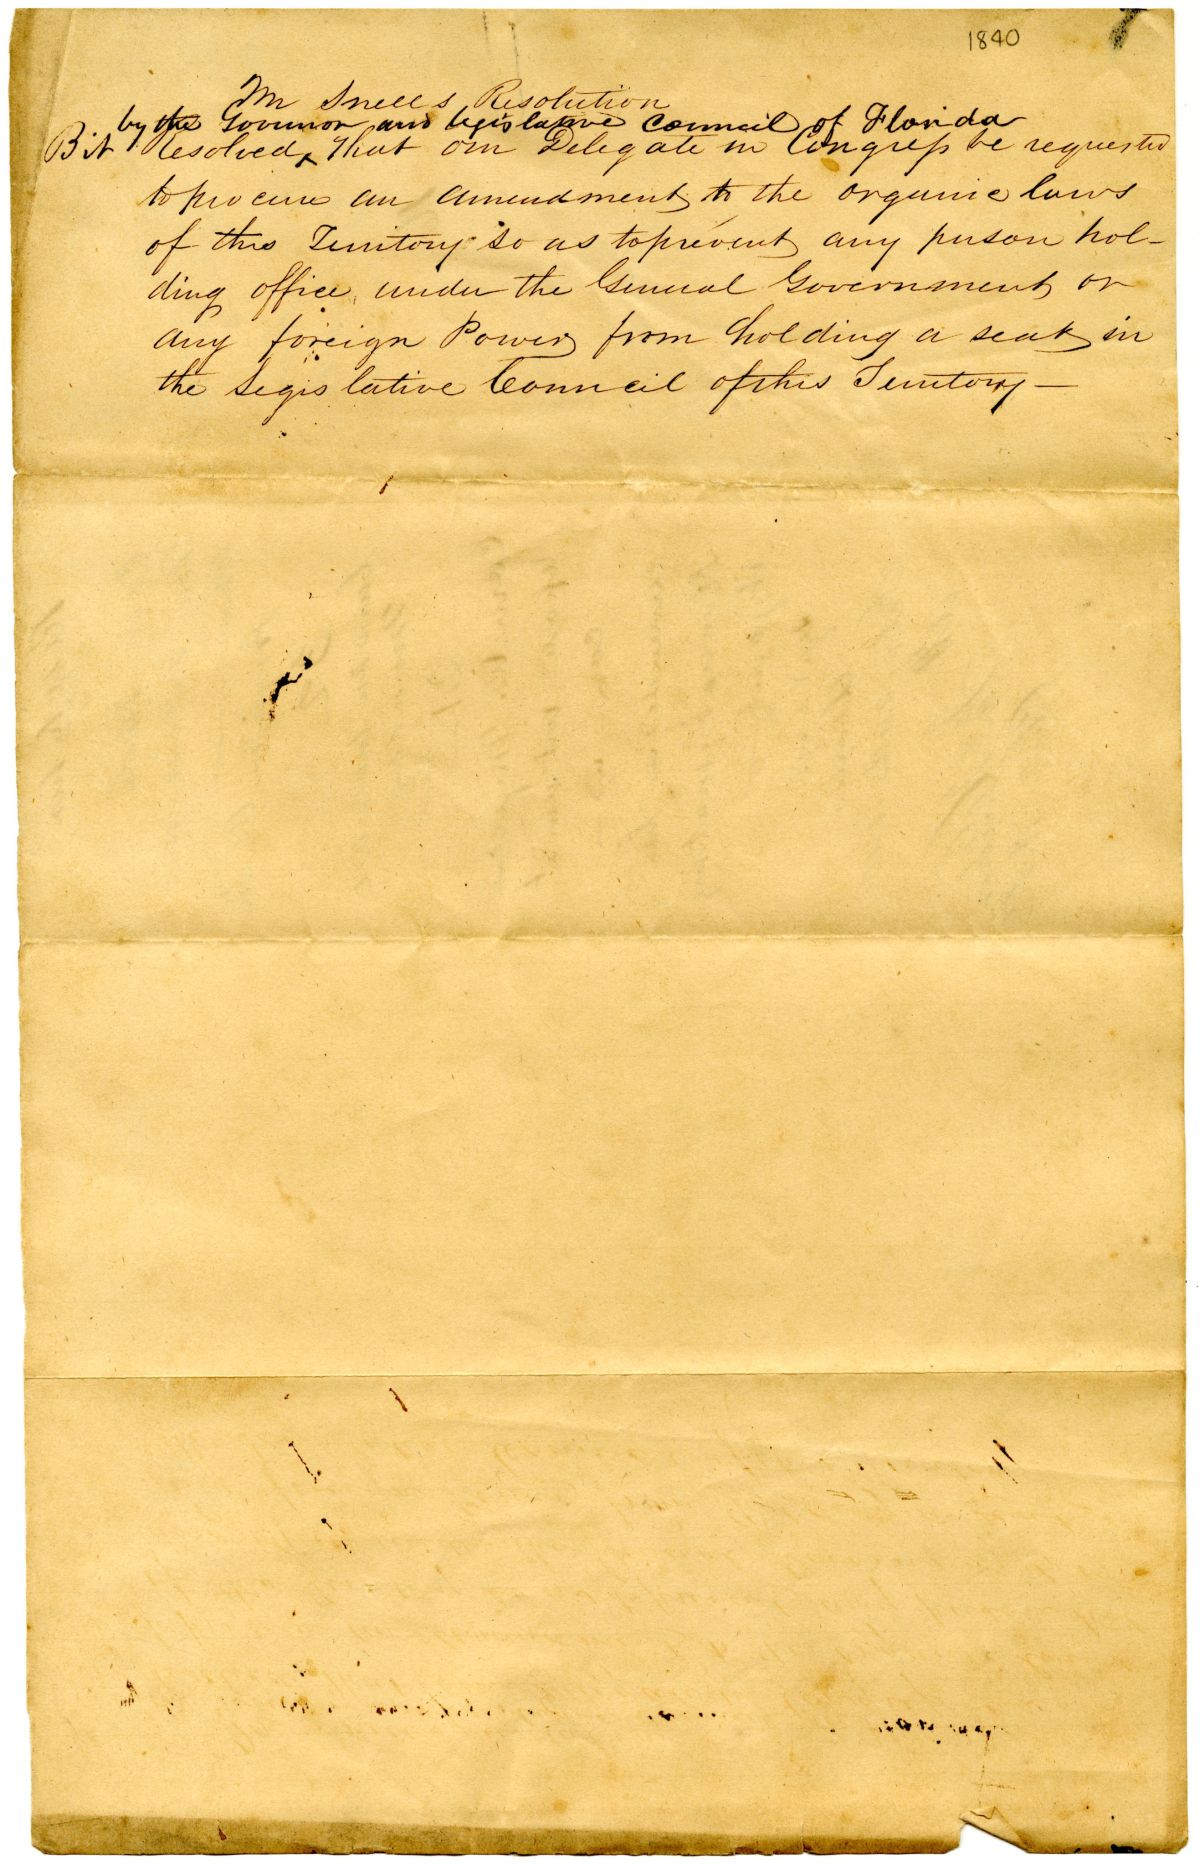 1840
Mr Snells Resolution
by the Governor and legislative Council of Florida
B it Resolved, That our Delegate in Congress be requested
to procure an amendment to the organic laws
of this Territory so as to prevent any person hol-
ding office under the General Government or
any foreign Power from holding a seat in
the Legislative Council of this Territory —